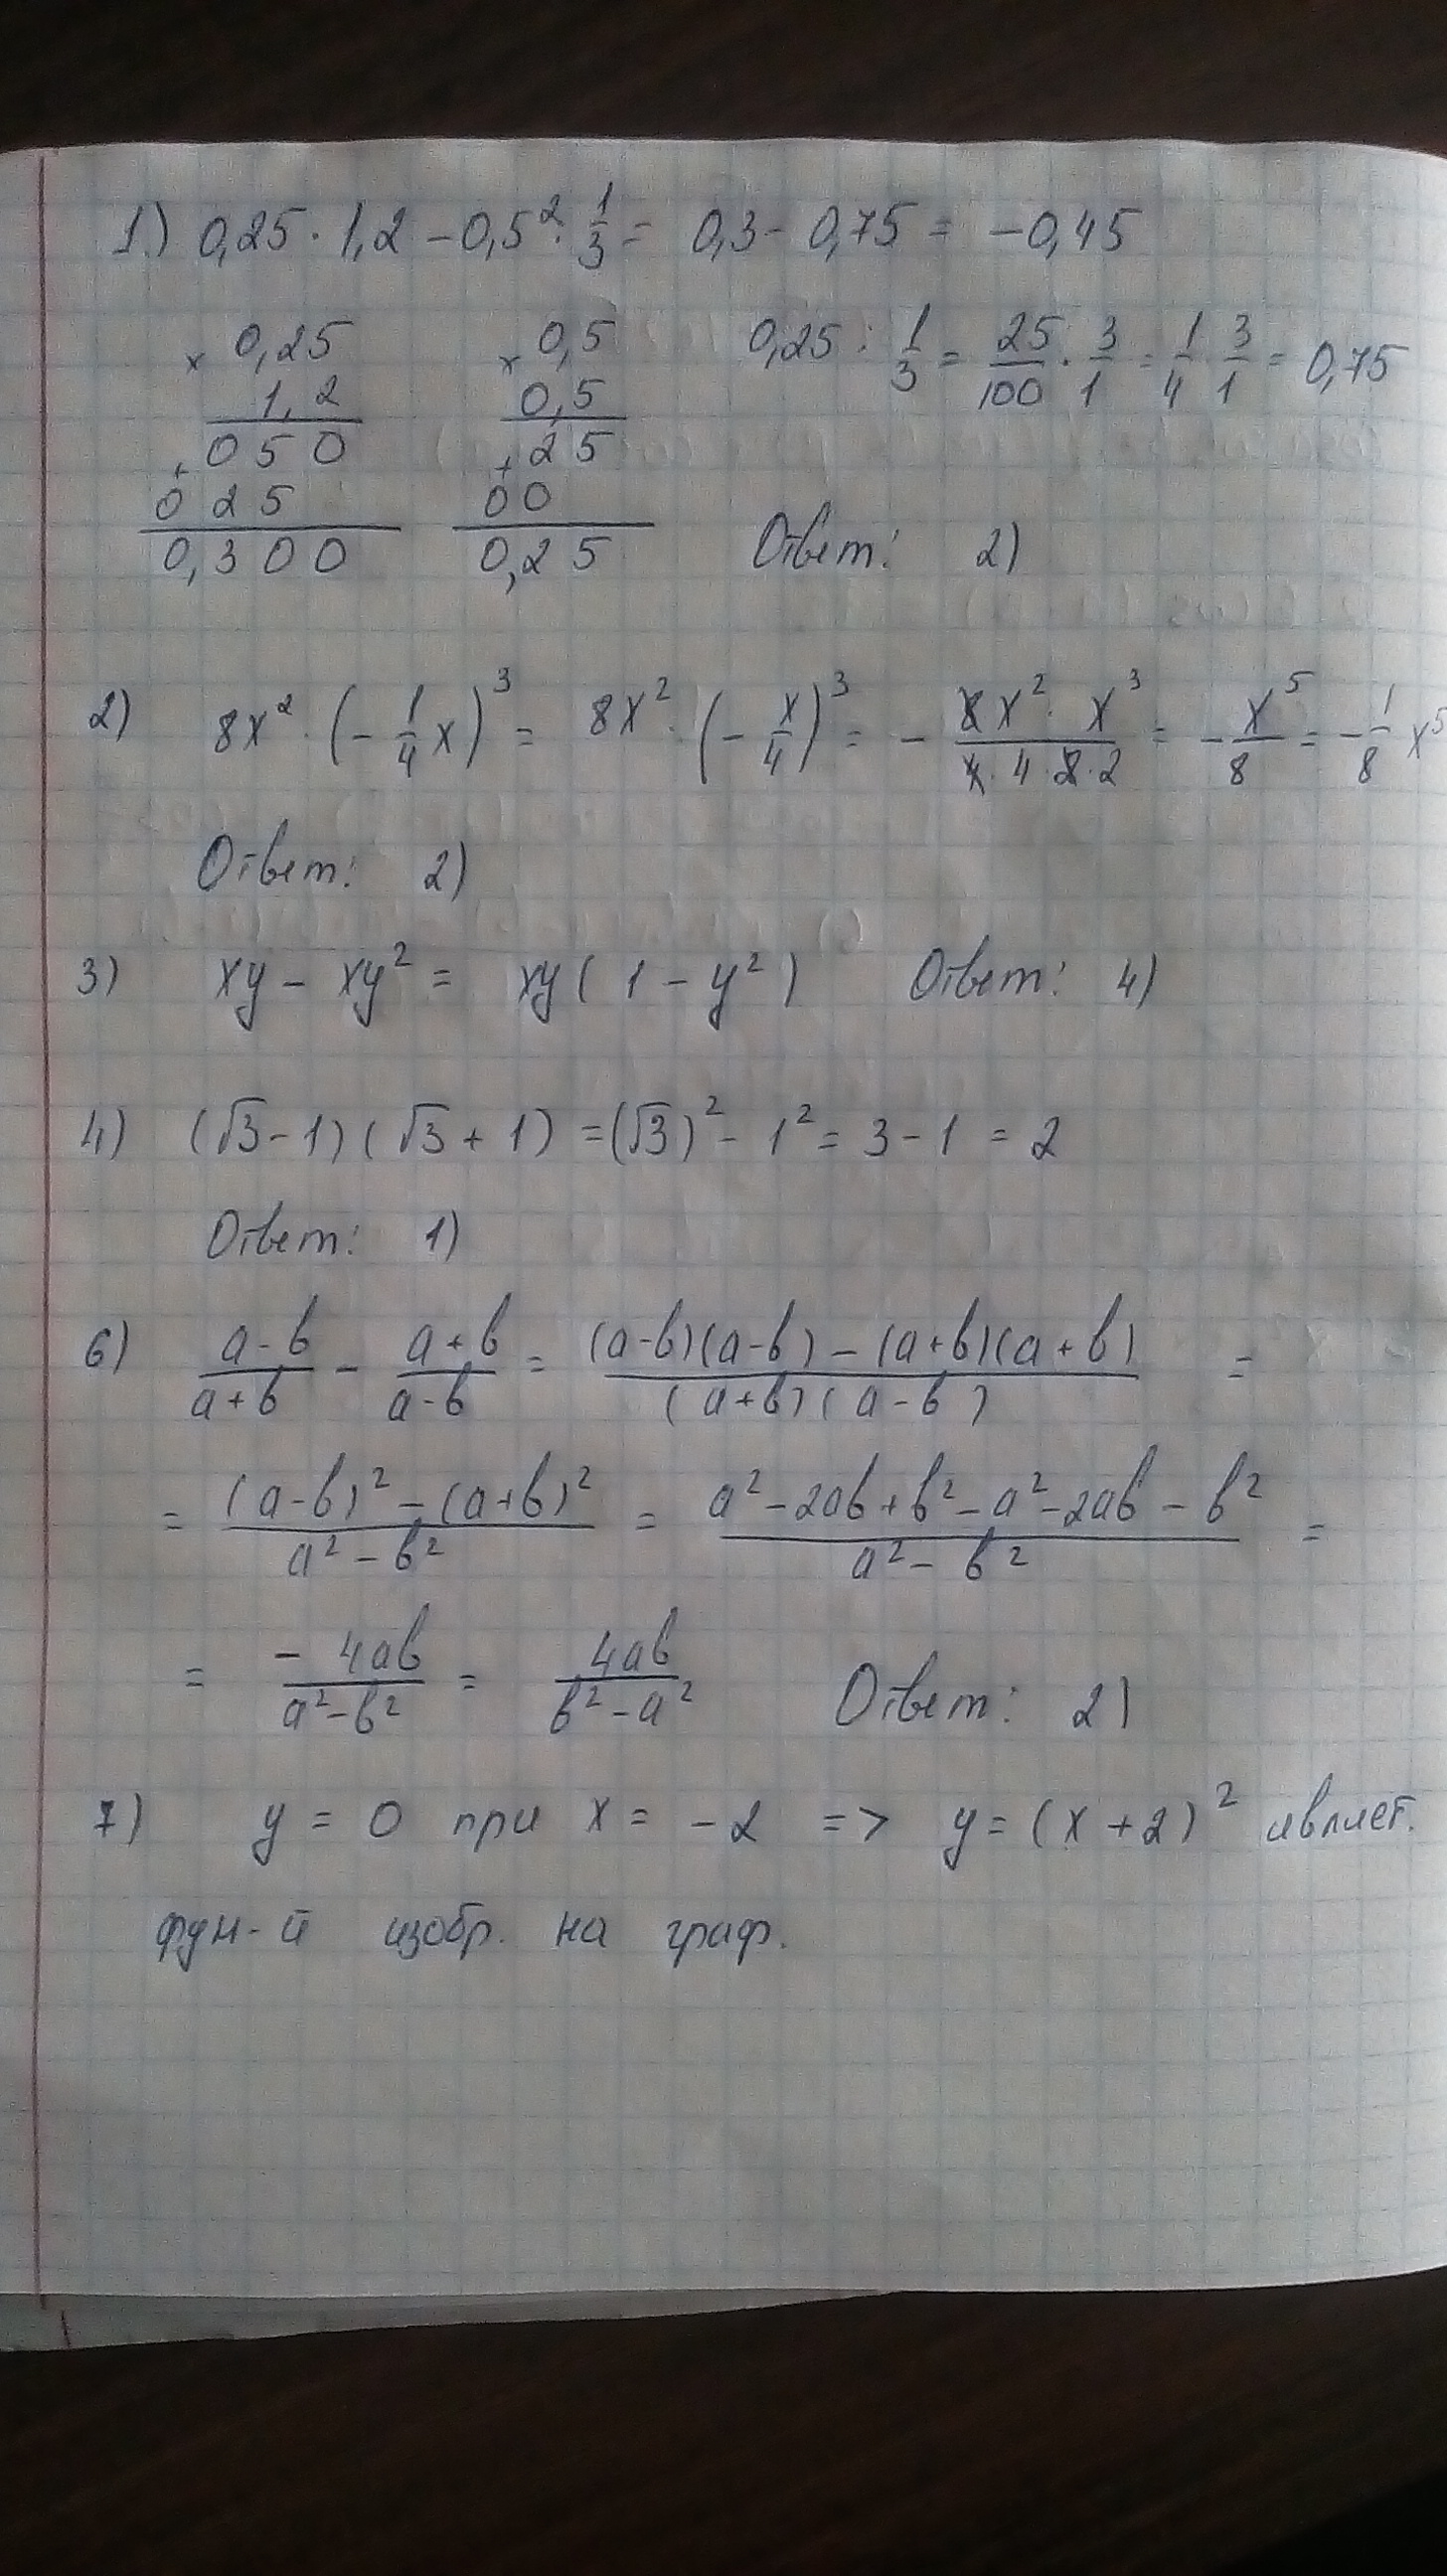 1.) 0,25 · 1,2 - 0,5² : 1/3 = 0,3 - 0,75 = -0,45
× 0,25 × 0,5 0,25 : 1/3 = 25/100 · 3/1 = 1/4 · 3/1 = 0,75
1,2 0,5
050 25
+ +
025 00
0,300 0,25 Ответ: 2)
2) 8x² · (-1/4 x)³ = 8x² · (-x/4)³ = - 8x² · x³ / 4 · 4 · 2 · 2 = - x⁵/8 = - 1/8 x⁵
Ответ: 2)
3) xy - xy² = xy (1 - y²) Ответ: 4)
4) (√3 - 1)(√3 + 1) = (√3)² - 1² = 3 - 1 = 2
Ответ: 1)
6) a-b/a+b - a+b/a-b = (a-b)(a-b) - (a+b)(a+b) / (a+b)(a-b) =
= (a-b)² - (a+b)² / a² - b² = a² - 2ab + b² - a² - 2ab - b² / a² - b² =
= - 4ab / a² - b² = 4ab / b² - a² Ответ: 2)
7) y = 0 при x = -2 => y = (x + 2)² являет.
фун-й изобр. на граф.